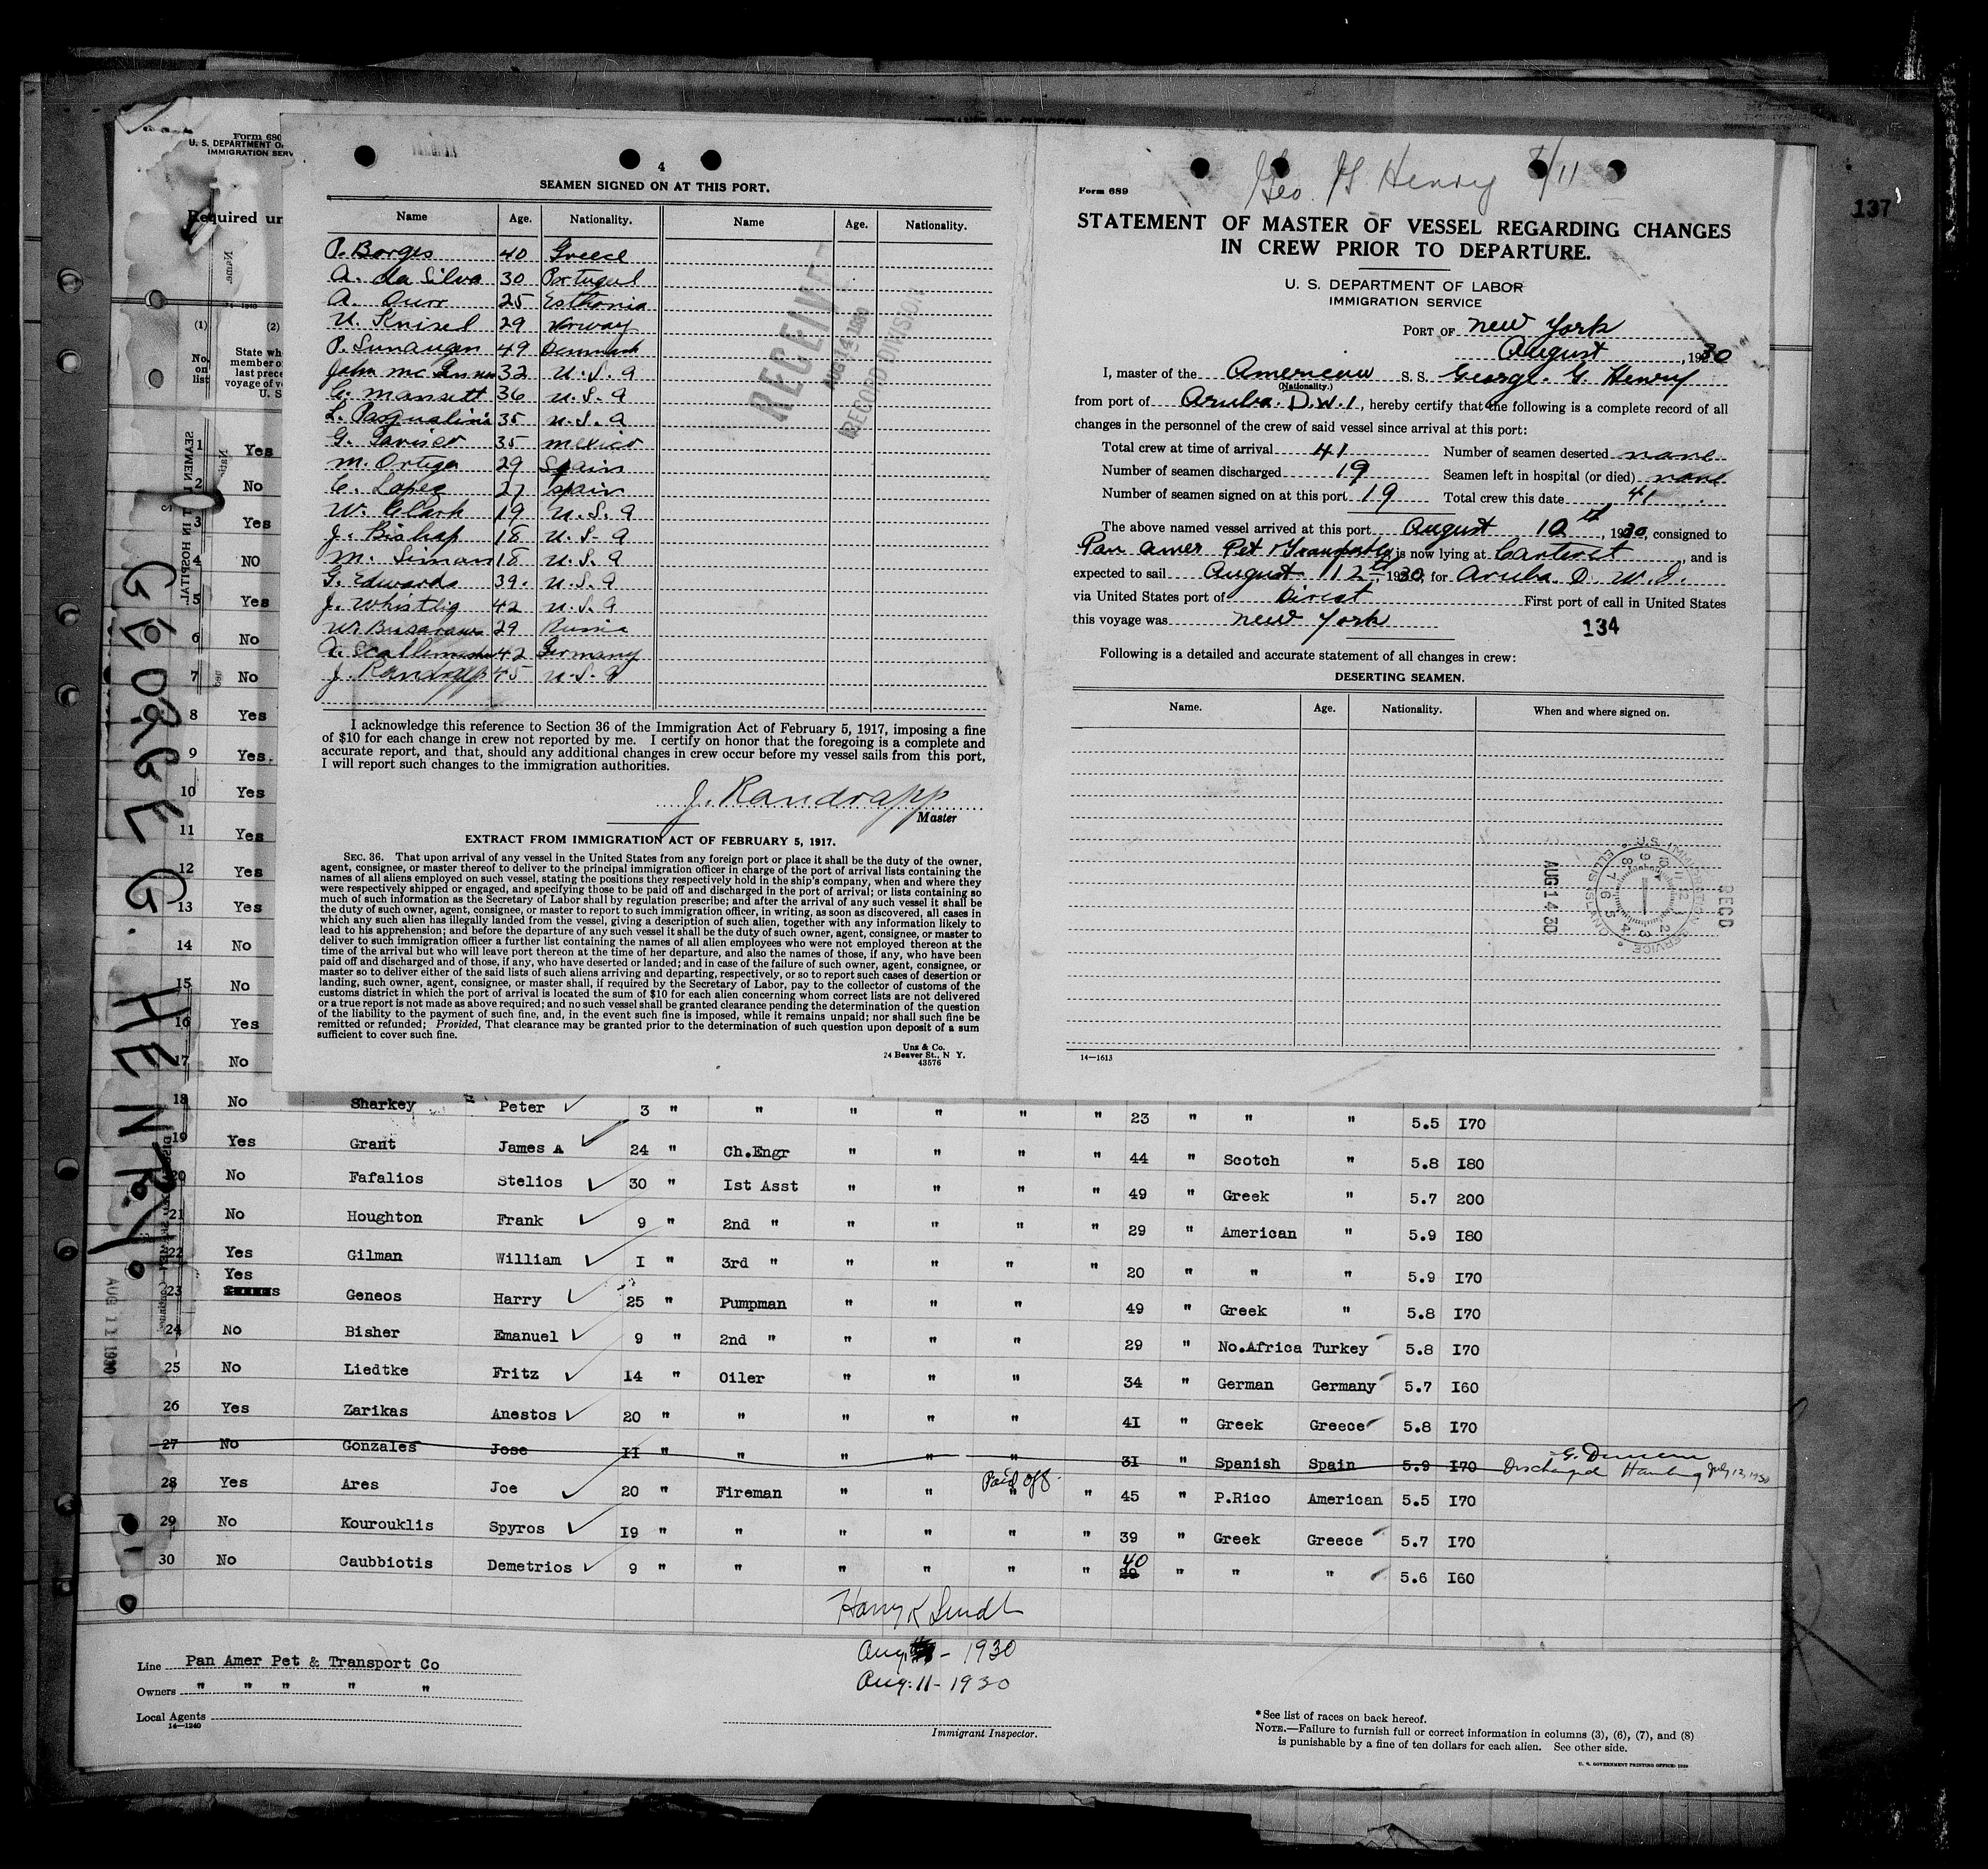 137
Form 680
U. S. DEPARTMENT O
IMMIGRATION SERV
Required un
(1) (2)
No. on list
State wh
member o
last prece
voyage of v
U. S
1 Yes
2 No
3 Yes
4 NO
5 Yes
6 No
7 No
8 Yes
9 Yes.
10 Yes
11 Yes
12 Yes
13 Yes
14 No
15 No
16 Yes
17 No
GEORGE G. HENRY
AUG 11 1930
4
SEAMEN SIGNED ON AT THIS PORT.
Name Age. Nationality. Name Age. Nationality.
P. Borges 40 Greece
A. da Silva 30 Portugal
A. 25 Esthonia
U. Knisel 29 Norway
P. 49 Denmark
John Mc 32 U.S.A
C. Mansett 36 U.S.A
L. Pasqualini 35 U.S.A
G. 35 Mexico
M. Ortega 29 Spain
E. Lopez 27 Spain
W. Clark 19 U.S.A
J. Bishop 18 U.S.A
M. 18 U.S.A
G. Edwards 39. U.S.A
J. Whistlig 42 U.S.A
W. 29 Russia
42 Germany
J. Randrapp 45 U.S.A
RECEIVED
AUG 14 1930
RECORD DIVISION
I acknowledge this reference to Section 36 of the Immigration Act of February 5, 1917, imposing a fine
of $10 for each change in crew not reported by me. I certify on honor that the foregoing is a complete and
accurate report, and that, should any additional changes in crew occur before my vessel sails from this port,
I will report such changes to the immigration authorities.
J. Randrapp
Master
EXTRACT FROM IMMIGRATION ACT OF FEBRUARY 5, 1917.
SEC. 36. That upon arrival of any vessel in the United States from any foreign port or place it shall be the duty of the owner,
agent, consignee, or master thereof to deliver to the principal immigration officer in charge of the port of arrival lists containing the
names of all aliens employed on such vessel, stating the positions they respectively hold in the ship's company, when and where they
were respectively shipped or engaged, and specifying those to be paid off and discharged in the port of arrival; or lists containing so
much of such information as the Secretary of Labor shall by regulation prescribe; and after the arrival of any such vessel it shall be
the duty of such owner, agent, consignee, or master to report to such immigration officer, in writing, as soon as discovered, all cases in
which any such alien has illegally landed from the vessel, giving a description of such alien, together with any information likely to
lead to his apprehension; and before the departure of any such vessel it shall be the duty of such owner, agent, consignee, or master to
deliver to such immigration officer a further list containing the names of all alien employees who were not employed thereon at the
time of the arrival but who will leave port thereon at the time of her departure, and also the names of those, if any, who have been
paid off and discharged and of those, if any, who have deserted or landed; and in case of the failure of such owner, agent, consignee, or
master so to deliver either of the said lists of such aliens arriving and departing, respectively, or so to report such cases of desertion or
landing, such owner, agent, consignee, or master shall, if required by the Secretary of Labor, pay to the collector of customs of the
customs district in which the port of arrival is located the sum of $10 for each alien concerning whom correct lists are not delivered
or a true report is not made as above required; and no such vessel shall be granted clearance pending the determination of the question
of the liability to the payment of such fine, and, in the event such fine is imposed, while it remains unpaid; nor shall such fine be
remitted or refunded; Provided, That clearance may be granted prior to the determination of such question upon deposit of a sum
sufficient to cover such fine.
Unz & Co.
24 Beaver St., N Y.
43576
Geo. G Henry 8/11
Form 689
STATEMENT OF MASTER OF VESSEL REGARDING CHANGES
IN CREW PRIOR TO DEPARTURE.
U. S. DEPARTMENT OF LABOR
IMMIGRATION SERVICE
PORT OF New York
August, 1930
I, master of the American S. S. George. G. Henry
(Nationality.)
from port of Aruba. D.W.I, hereby certify that the following is a complete record of all
changes in the personnel of the crew of said vessel since arrival at this port:
Total crew at time of arrival 41 Number of seamen deserted none
Number of seamen discharged 19 Seamen left in hospital (or died) none
Number of seamen signed on at this port 19 Total crew this date 41
The above named vessel arrived at this port August 10th, 1930, consigned to
Pan Amer Pet & Transport Co is now lying at Carteret, and is
expected to sail August 12th, 1930, for Aruba D. W. I.
via United States port of Direct First port of call in United States
this voyage was New York
134
Following is a detailed and accurate statement of all changes in crew:
DESERTING SEAMEN.
Name. Age. Nationality. When and where signed on.
U.S. IMMIGRATION SERVICE ELLIS ISLAND
RECD
AUG 14 30
14—1613
18 No Sharkey Peter 3 " " " " " " 23 " " " 5.5 I70
19 Yes Grant James A 24 " Ch.Engr " " " " 44 " Scotch " 5.8 I80
20 No Fafalios Stelios 30 " Ist Asst " " " " 49 " Greek " 5.7 200
21 No Houghton Frank 9 " 2nd " " " " " 29 " American " 5.9 I80
22 Yes Gilman William I " 3rd " " " " " 20 " " " 5.9 I70
23 Yes Geneos Harry 25 " Pumpman " " " 49 " Greek " 5.8 I70
24 No Bisher Emanuel 9 " 2nd " " " " 29 " No.Africa Turkey 5.8 I70
25 No Liedtke Fritz I4 " Oiler " " " 34 " German Germany 5.7 I60
26 Yes Zarikas Anestos 20 " " " " " 4I " Greek Greece 5.8 I70
27 No Gonzales Jose II " " " " " 3I " Spanish Spain 5.9 I70 Discharged Hamburg July 12, 1930
28 Yes Ares Joe 20 " Fireman " " Paid off " " 45 " P.Rico American 5.5 I70
29 No Kourouklis Spyros I9 " " " " " " 39 " Greek Greece 5.7 I70
30 No Caubbiotis Demetrios 9 " " " " " " 40 " " " 5.6 I60
Line Pan Amer Pet & Transport Co
Owners " " " " "
Local Agents
14—1240
Aug - 1930
Aug. 11 - 1930
Immigrant Inspector.
* See list of races on back hereof.
NOTE.—Failure to furnish full or correct information in columns (3), (6), (7), and (8)
is punishable by a fine of ten dollars for each alien. See other side.